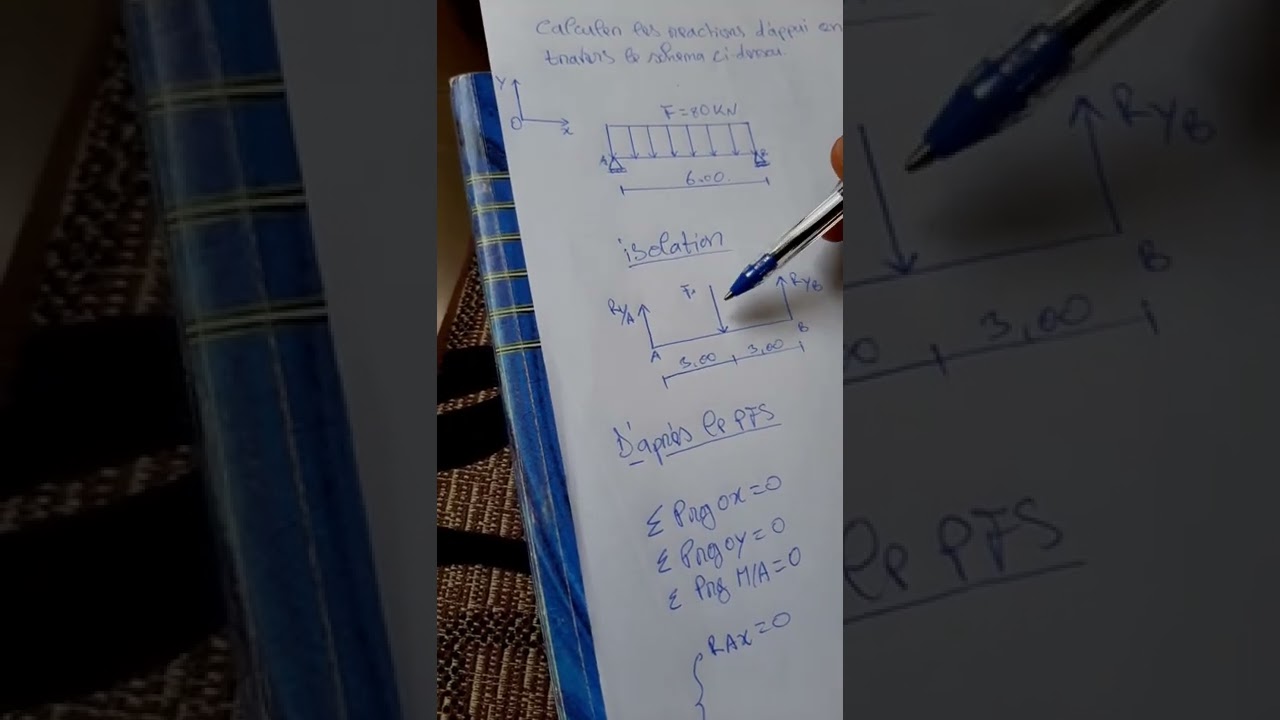 Calculer les reactions d'appui en
travers le schema ci dessou.
Y
O
x
F=80KN
A
B
6,00
isolation
RyA
F
RyB
A
B
3,00
3,00
D'après le PFS
Σ Proj ox=0
Σ Proj oy=0
Σ Proj M/A=0
RAx=0
RyB
B
3,00
le PFS